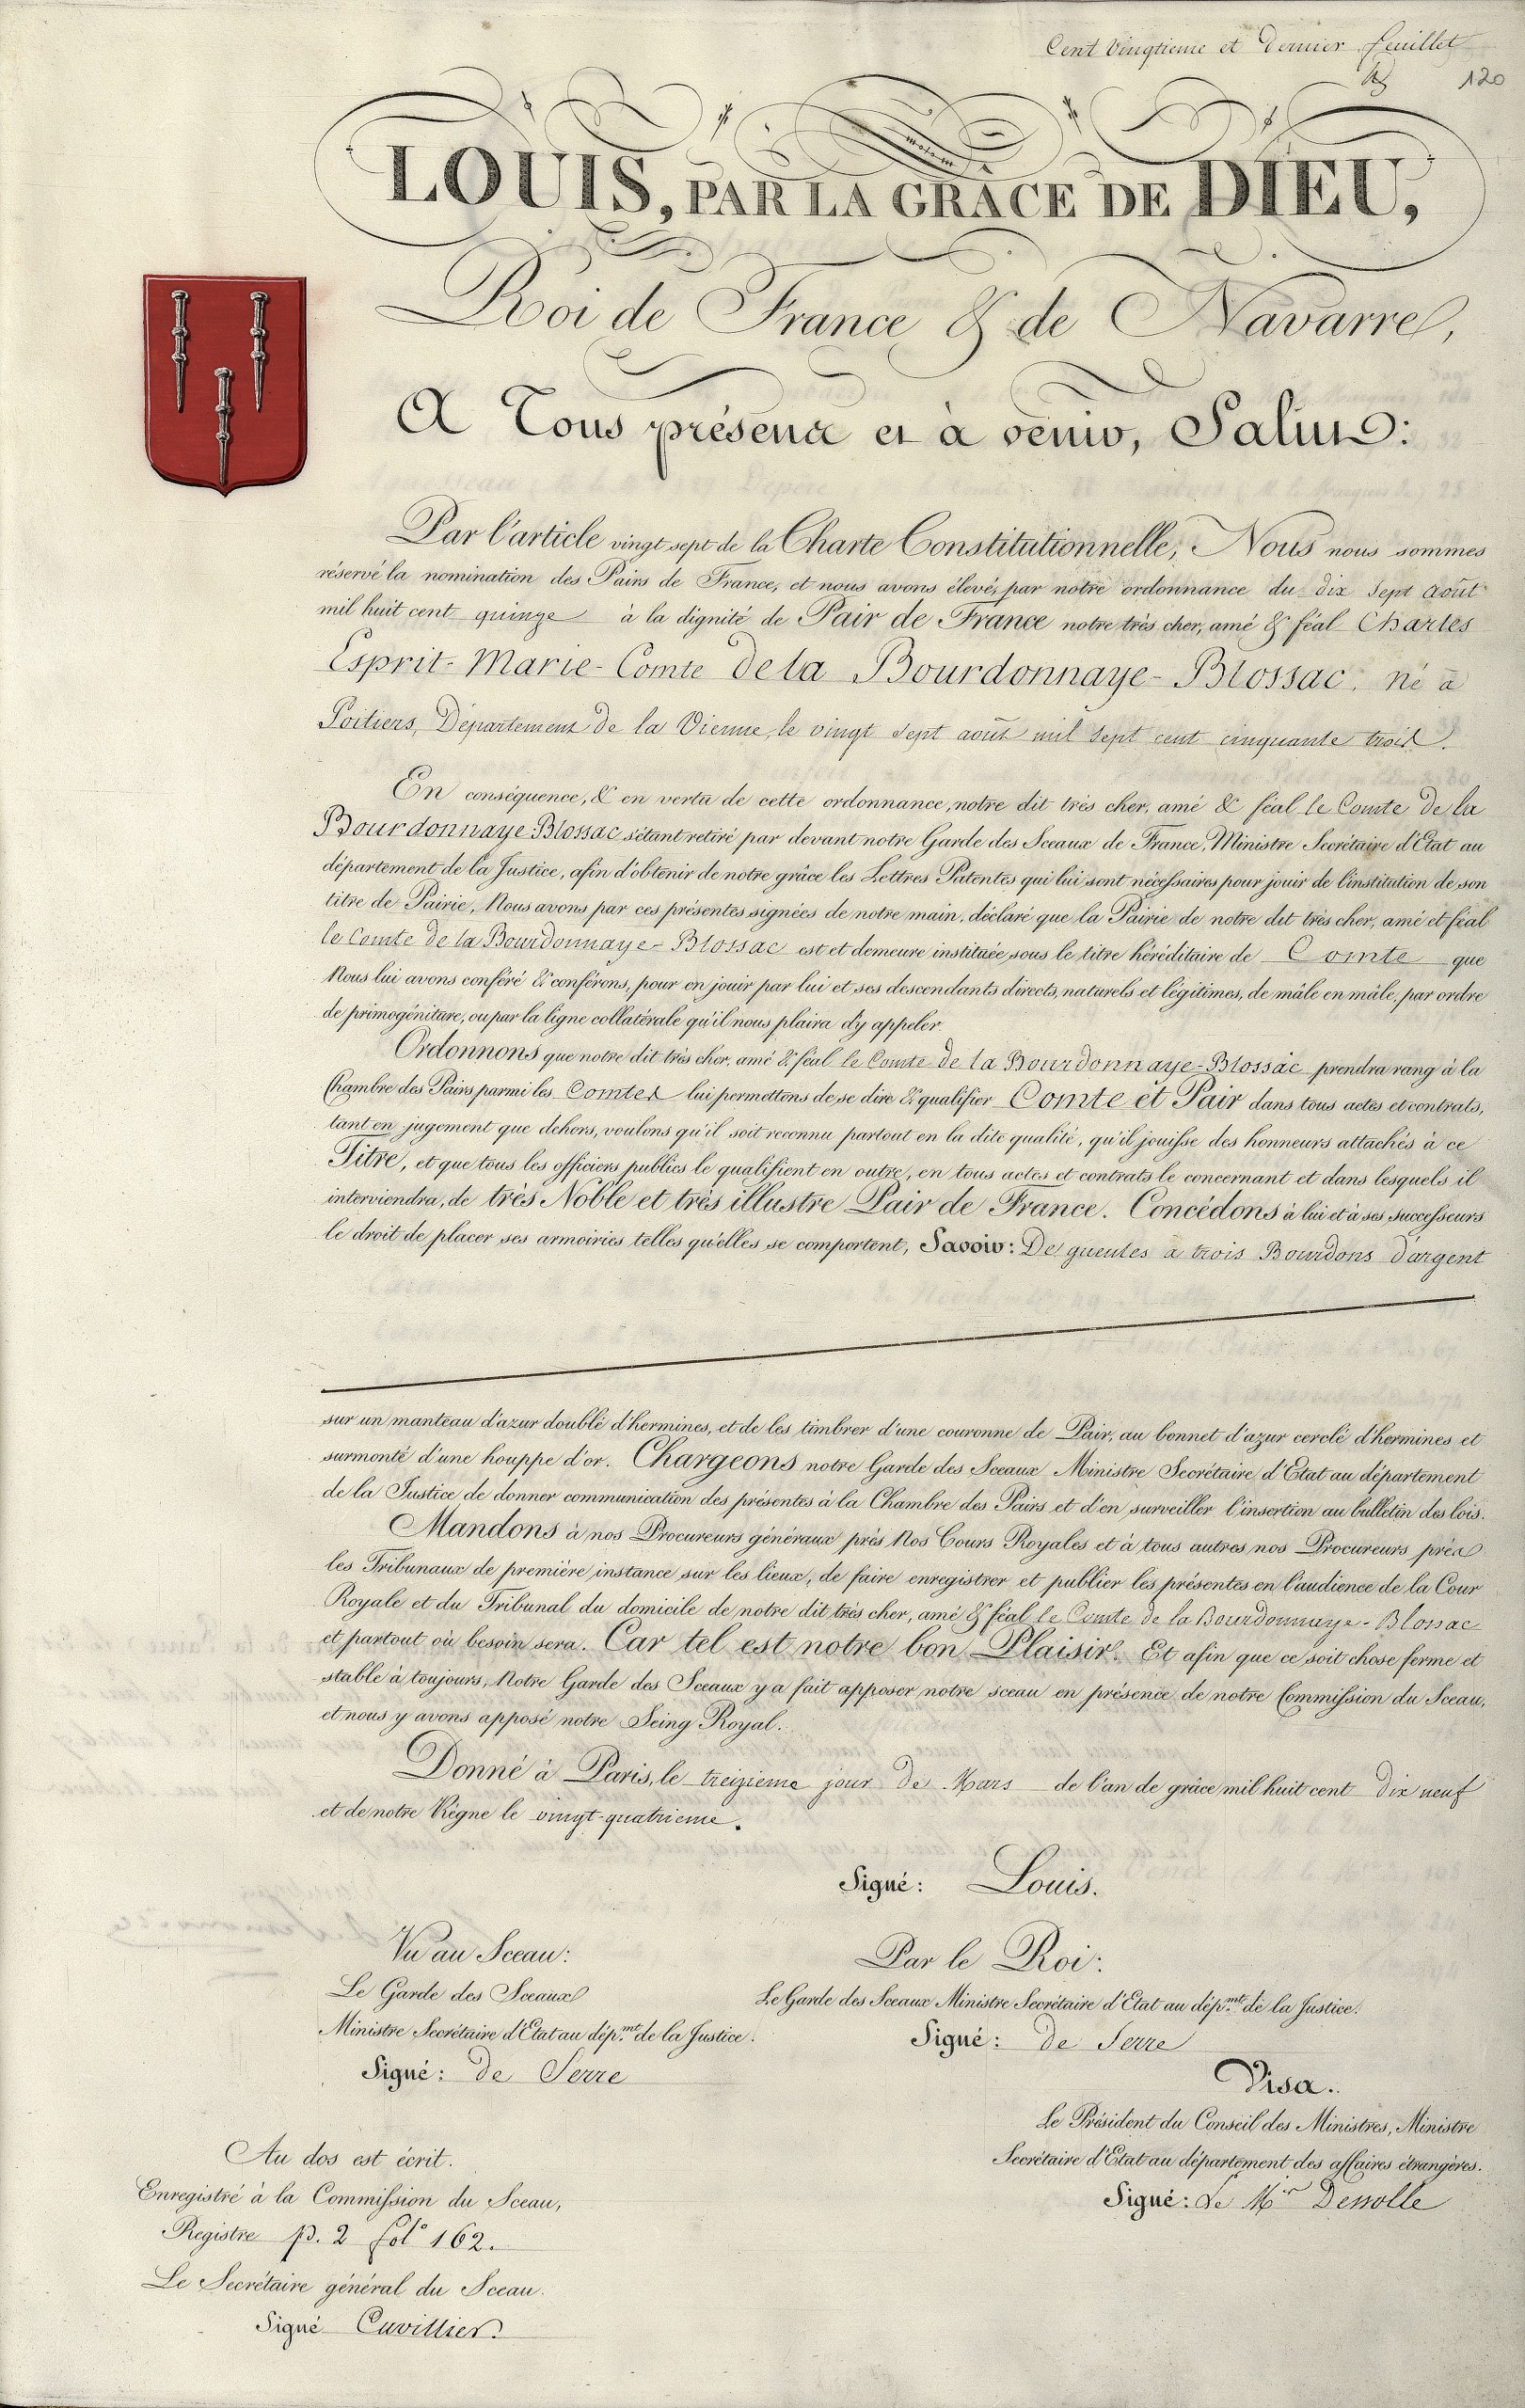 Cent Vingtieme et Dernier feuillet
120
LOUIS, PAR LA GRÂCE DE DIEU,
Roi de France & de Navarre,
A Tous présens et à venir, Salut:
Par l'article vingt sept de la Charte Constitutionnelle, Nous nous sommes
réservé la nomination des Pairs de France, et nous avons élevé, par notre ordonnance du dix sept août
mil huit cent quinze à la dignité de Pair de France notre très cher, amé & féal Charles
Esprit-Marie-Comte de la Bourdonnaye-Blossac, né à
Poitiers, Département de la Vienne, le vingt sept août mil sept cent cinquante trois.
En conséquence, & en vertu de cette ordonnance, notre dit très cher, amé & féal le Comte de la
Bourdonnaye-Blossac s'étant retiré par devant notre Garde des Sceaux de France, Ministre Secrétaire d'Etat au
département de la Justice, afin d'obtenir de notre grâce les Lettres Patentes qui lui sont nécessaires pour jouir de l'institution de son
titre de Pairie, Nous avons par ces présentes signées de notre main, déclaré que la Pairie de notre dit très cher, amé et féal
le Comte de la Bourdonnaye-Blossac est et demeure instituée sous le titre héréditaire de Comte que
Nous lui avons conféré & conférons, pour en jouir par lui et ses descendants directs, naturels et légitimes, de mâle en mâle, par ordre
de primogéniture, ou par la ligne collatérale qu'il nous plaira d'y appeler.
Ordonnons que notre dit très cher, amé & féal le Comte de la Bourdonnaye-Blossac prendra rang à la
Chambre des Pairs parmi les Comtes lui permettons de se dire & qualifier Comte et Pair dans tous actes et contrats,
tant en jugement que dehors, voulons qu'il soit reconnu partout en la dite qualité, qu'il jouisse des honneurs attachés à ce
Titre, et que tous les officiers publics le qualifient en outre, en tous actes et contrats le concernant et dans lesquels il
interviendra, de très Noble et très illustre Pair de France. Concédons à lui et à ses successeurs
le droit de placer ses armoiries telles qu'elles se comportent, Savoir: De gueules à trois Bourdons d'argent
sur un manteau d'azur doublé d'hermines, et de les timbrer d'une couronne de Pair, au bonnet d'azur cerclé d'hermines et
surmonté d'une houppe d'or. Chargeons notre Garde des Sceaux Ministre Secrétaire d'Etat au département
de la Justice de donner communication des présentes à la Chambre des Pairs et d'en surveiller l'insertion au bulletin des lois.
Mandons à nos Procureurs généraux près Nos Cours Royales et à tous autres nos Procureurs près
les Tribunaux de première instance sur les lieux, de faire enregistrer et publier les présentes en l'audience de la Cour
Royale et du Tribunal du domicile de notre dit très cher, amé & féal le Comte de la Bourdonnaye-Blossac
et partout où besoin sera. Car tel est notre bon Plaisir. Et afin que ce soit chose ferme et
stable à toujours, Notre Garde des Sceaux y a fait apposer notre sceau en présence de notre Commission du Sceau,
et nous y avons apposé notre Seing Royal.
Donné à Paris, le treizieme jour de Mars de l'an de grâce mil huit cent dix neuf
et de notre Règne le vingt-quatrieme.
Signé: Louis.
Vu au Sceau:
Le Garde des Sceaux
Ministre Secrétaire d'Etat au dép.mt de la Justice.
Signé: de Serre
Par le Roi:
Le Garde des Sceaux Ministre Secrétaire d'Etat au dép.mt de la Justice.
Signé: de Serre
Visa.
Le Président du Conseil des Ministres, Ministre
Secrétaire d'Etat au département des affaires étrangères.
Signé: Le Mis Dessolle
Au dos est écrit.
Enregistré à la Commission du Sceau,
Registre p. 2 folo 162.
Le Secrétaire général du Sceau.
Signé Cuvillier.